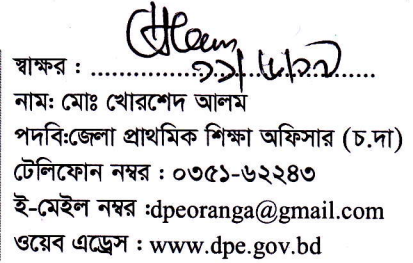 স্বাক্ষর : ................................
নাম: মোঃ খোরশেদ আলম
পদবি:জেলা প্রাথমিক শিক্ষা অফিসার (চ.দা)
টেলিফোন নম্বর : ০৩৫১-৬২২৪৩
ই-মেইল নম্বর :dpeoranga@gmail.com
ওয়েব এড্রেস : www.dpe.gov.bd